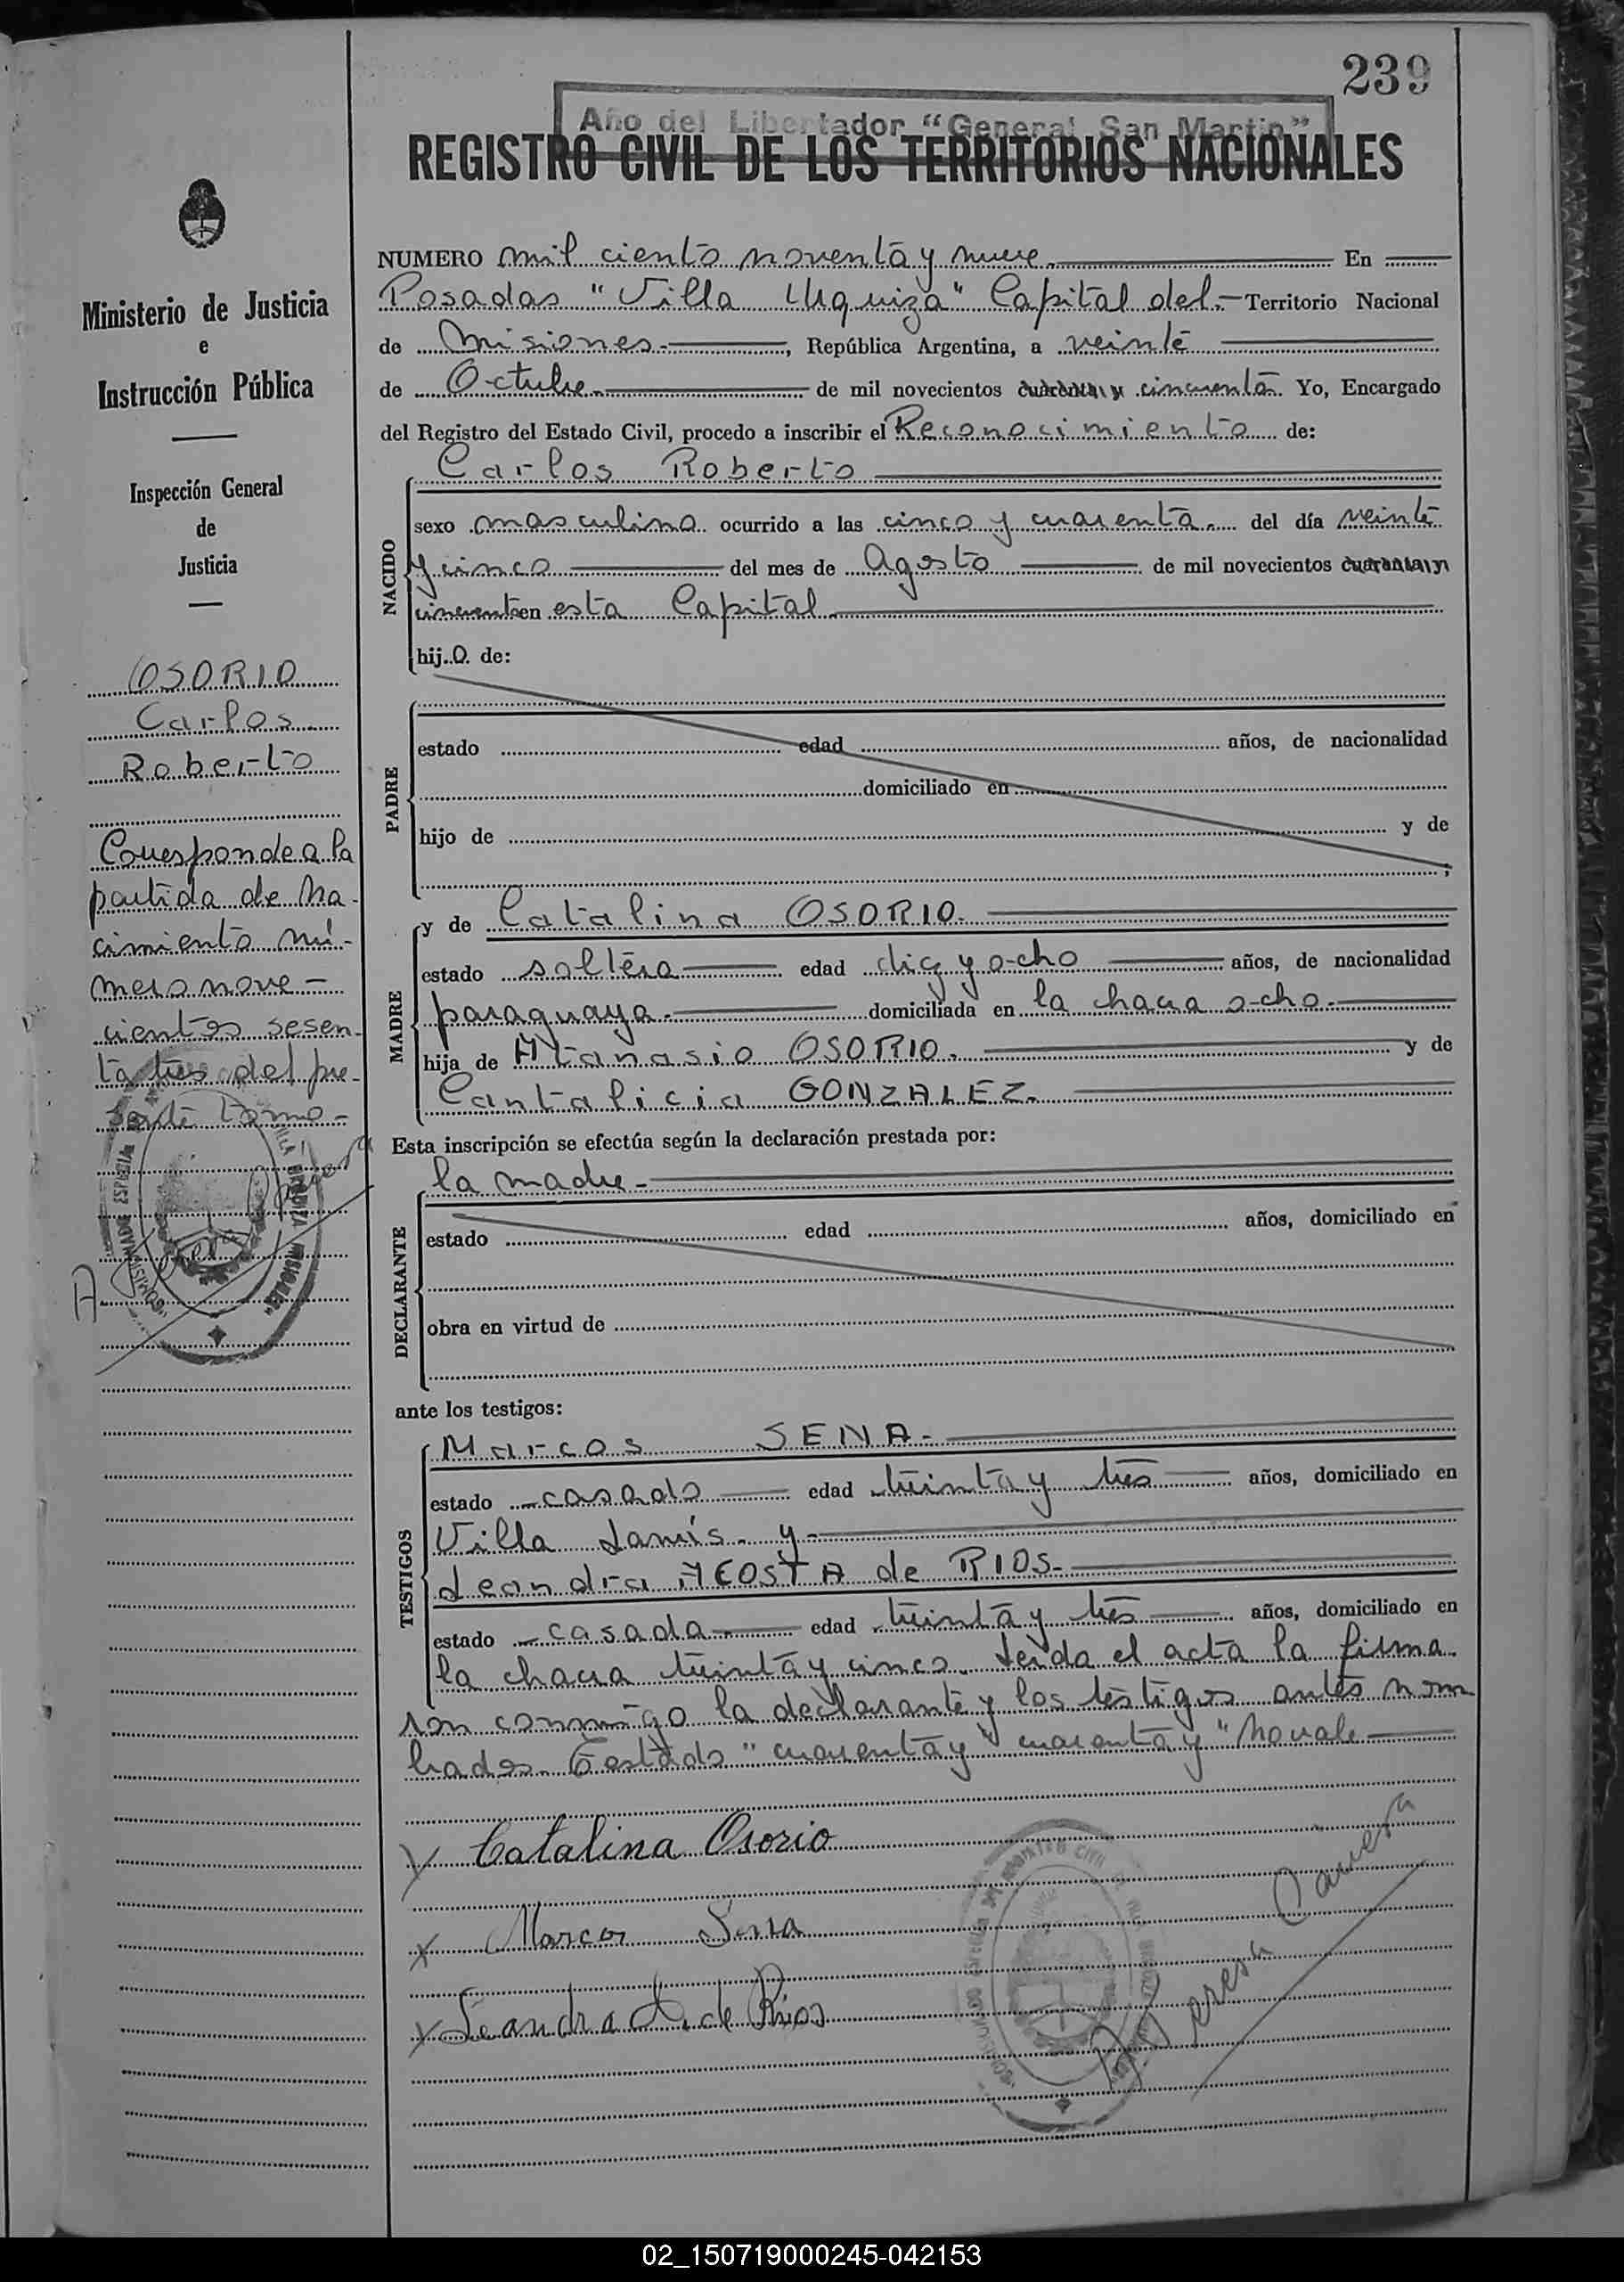 239
Año del Libertador "General San Martin"
REGISTRO CIVIL DE LOS TERRITORIOS NACIONALES
Ministerio de Justicia
e
Instrucción Pública
Inspección General
de
Justicia
OSORIO
Carlos
Roberto
Corresponde a la
partida de Na-
cimiento nú-
mero nove-
cientos sesen-
ta tres del pre-
sente tomo-
NUMERO mil ciento noventa y nueve. En
Posadas "Villa Urquiza" Capital del.- Territorio Nacional
de Misiones.-, República Argentina, a veinte
de Octubre.- de mil novecientos cuarenta y cincuenta. Yo, Encargado
del Registro del Estado Civil, procedo a inscribir el Reconocimiento de:
NACIDO
Carlos Roberto
sexo masculino ocurrido a las cinco y cuarenta. del día veinte
y cinco del mes de Agosto de mil novecientos cuarenta y
cincuenta en esta Capital.
hijo de:
PADRE
estado edad años, de nacionalidad
domiciliado en
hijo de y de
;
MADRE
y de Catalina OSORIO.
estado soltera edad diez y ocho años, de nacionalidad
paraguaya.- domiciliada en la chacra ocho.-
hija de Atanasio OSORIO. y de
Cantalicia GONZALEZ.
Esta inscripción se efectúa según la declaración prestada por:
DECLARANTE
la madre-
estado edad años, domiciliado en
obra en virtud de
ante los testigos:
TESTIGOS
Marcos SENA-
estado casado edad treinta y tres años, domiciliado en
Villa Lanús. y-
Leandra ACOSTA de RIOS-
estado casada edad treinta y tres años, domiciliado en
la chacra treinta y cinco. Leida el acta la firma.
ron conmigo la declarante y los testigos antes nom
brados. Testado "cuarenta y" cuarenta y "No vale
Catalina Osorio
Marcos Sena
Leandra A. de Rios
02_150719000245-042153